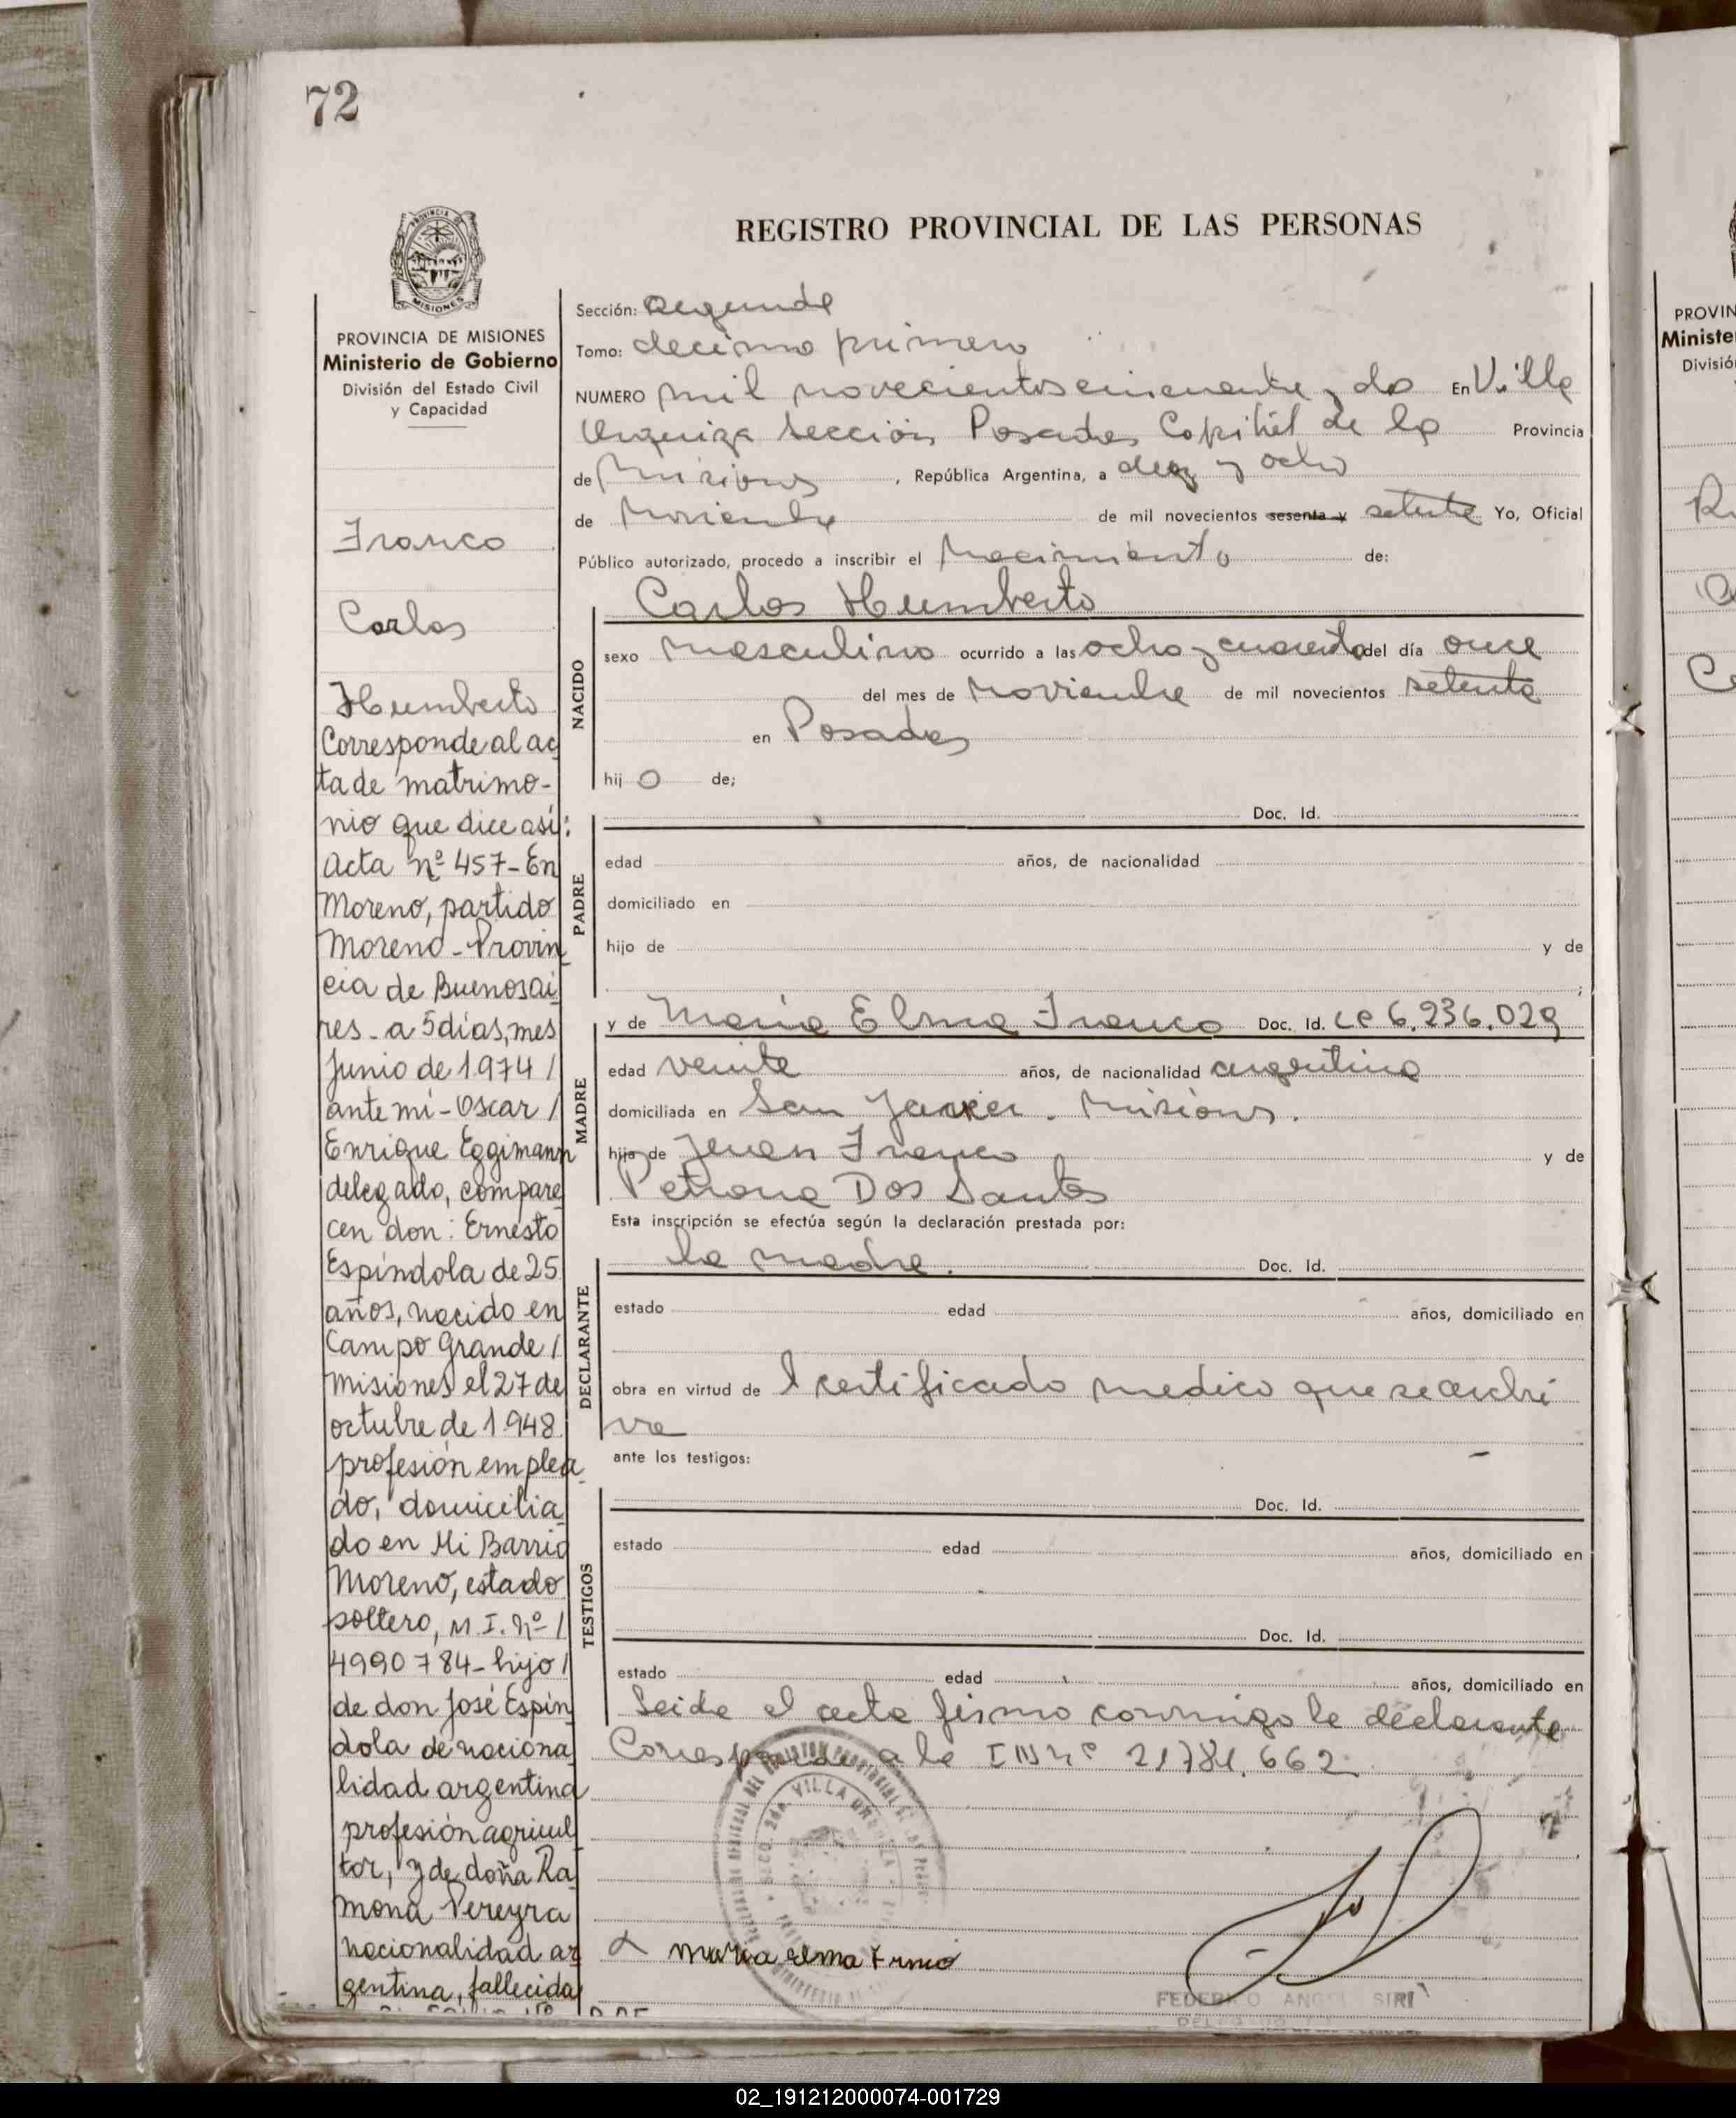 72
REGISTRO PROVINCIAL DE LAS PERSONAS
MISIONES
PROVINCIA DE MISIONES
Ministerio de Gobierno
División del Estado Civil
y Capacidad
Franco
Carlos
Humberto
Corresponde al ac
ta de matrimo-
nio que dice así:
Acta nº 457-En
Moreno, partido
Moreno-Provin
cia de Buenosai
res-a 5días,mes
Junio de 1974/
ante mi-Oscar/
Enrique Eggimann
delegado, compare
cen don: Ernesto
Espíndola de 25
años, nacido en
Campo Grande/
Misiones el 27 de
octubre de 1.948
profesión emplea
do, domicilia
do en Mi Barrio
Moreno, estado
soltero, M.I. nº/
4990784-hijo/
de don José Espín
dola de naciona
lidad argentina
profesión agricul
tor, y de doña Ra
mona Pereyra
nacionalidad ar
gentina, fallecida
Sección: Segunda
Tomo: decimo primero
NUMERO mil novecientos cincuenta y dos En Villa
Urquiza Sección Posadas Capital de la Provincia
de Misiones, República Argentina, a diez y ocho
de Noviembre de mil novecientos sesenta y setenta Yo, Oficial
Público autorizado, procedo a inscribir el Nacimiento de:
Carlos Humberto
NACIDO
sexo masculino ocurrido a las ocho y cuarenta del día once
del mes de Noviembre de mil novecientos setenta
en Posadas
hij o de;
Doc. Id.
PADRE
edad años, de nacionalidad
domiciliado en
hijo de y de
;
MADRE
y de María Elma Franco Doc. Id. LC 6.236.029
edad veinte años, de nacionalidad argentina
domiciliada en San Javier. Misiones.
hija de Juan Franco y de
Petrona Dos Santos
Esta inscripción se efectúa según la declaración prestada por:
DECLARANTE
la madre. Doc. Id.
estado edad años, domiciliado en
obra en virtud de l certificado medico que se archi
va
ante los testigos:
TESTIGOS
Doc. Id.
estado edad años, domiciliado en
Doc. Id.
estado edad años, domiciliado en
Leida el acta firmo conmigo la declarante
Corresponde a la I M nº 21.781.662.
SECC. 2da. VILLA URQUIZA
maria elma Franco
FEDERICO ANGEL SIRI
02_191212000074-001729